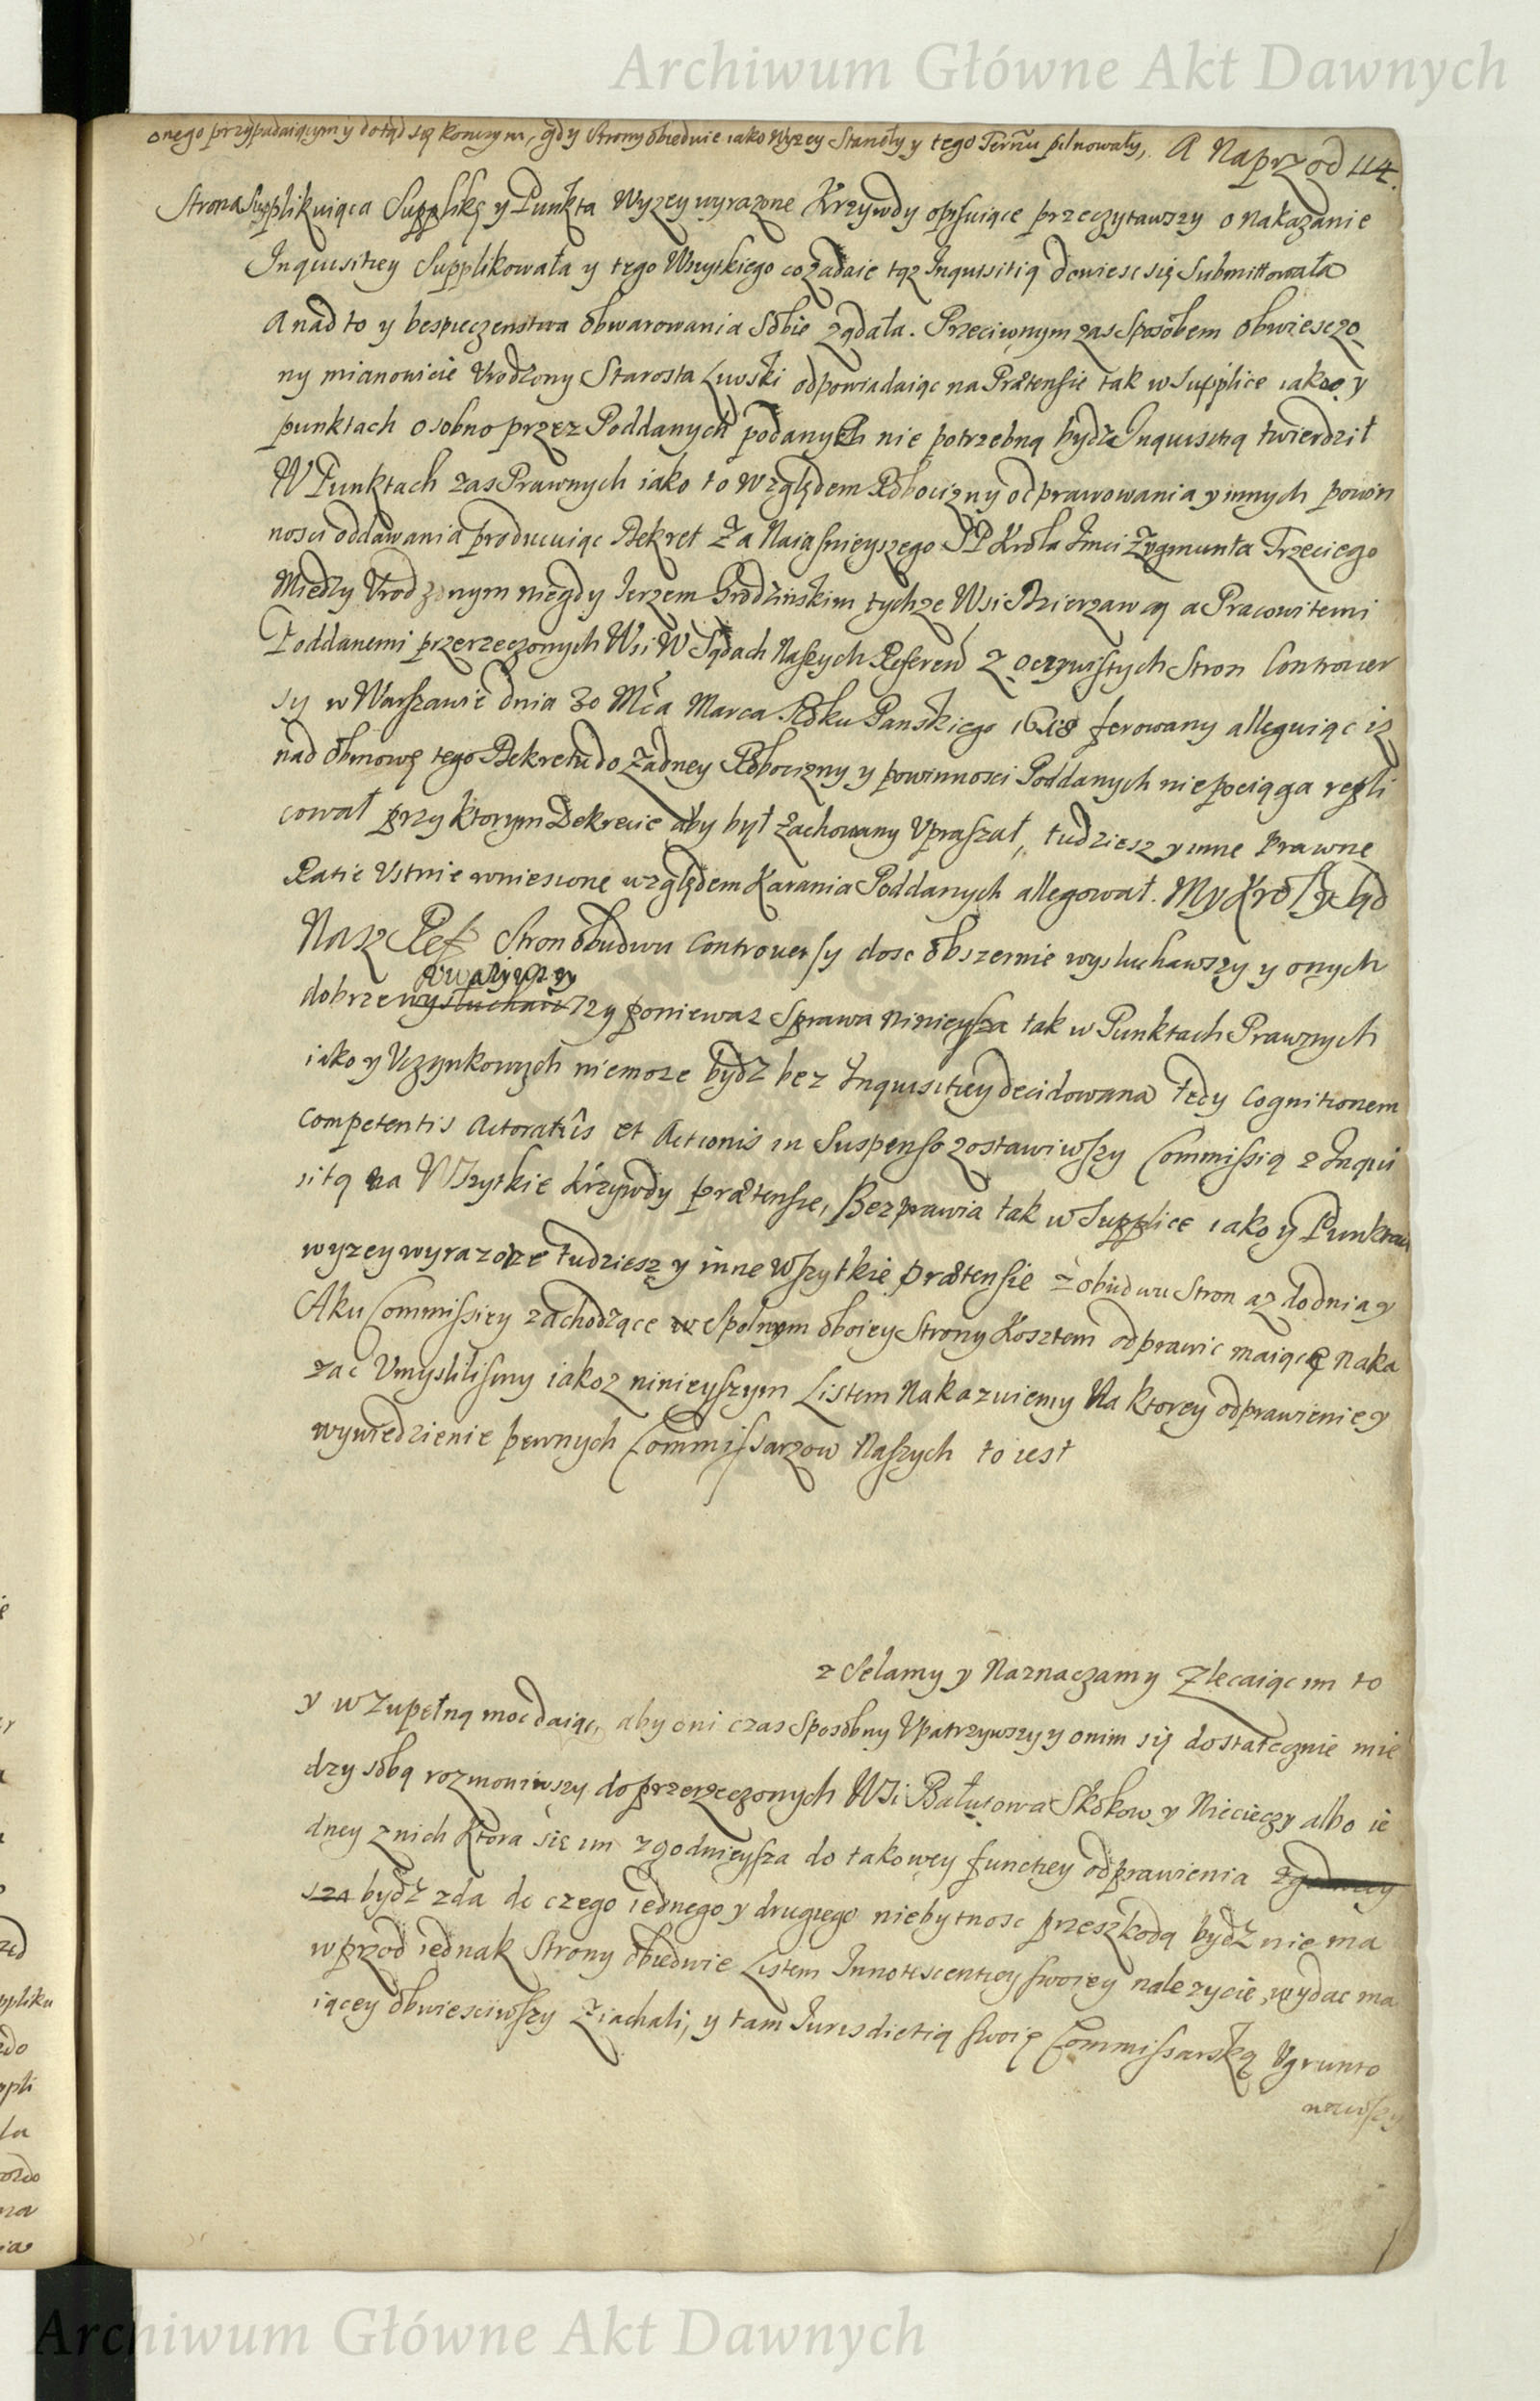 Archiwum Główne Akt Dawnych
onego przypadaiącym y dotąd się konczym, gdy Strony obiedwie iako Wyzey Stanęły y tego Termu pilnowały, A Naprzod 114.
Strona Supplikuiąca Supplikę y Punkta Wyzey wyrazone Krzywdy opisuiące przeczytawszy o nakazanie
Inquisitiey Supplikowała y tego Wszytkiego co zadaie tąz Inquisitią dowiesc się Submittowała
A nad to y bespieczenstwa obwarowania Sobie ządała. Przeciwnym zas Sposobem obwiesczo
ny mianowicie Urodzony Starosta Luwski odpowiadaiąc na Prætensie tak w Supplice iako y
punktach osobno przez Poddanych podanych nie potrzebną bydz Inquisitią twierdził
W Punktach zas Prawnych iako to względem Robocizny odprawowania y innych powin
nosci oddawania producuiąc Dekret Za Naiasnieyszego SP Krola Jmci Zygmunta Trzeciego
Między Urodzonym niegdy Jerzem Grodzinskim tychze Wsi Dzierzawcą a Pracowitemi
Poddanemi przerzeczonych Wsi W Sądach Naszych Referend z oczywistych Stron Controuer
sy w Warszawie dnia 30 Mca Marca Roku Panskiego 1618 ferowany alleguiąc isz
nad obmowę tego Dekretu do zadney Robocizny y powinnosci Poddanych nie pociąga repli
cował przy ktorym Dekrecie aby był zachowany Upraszał, tudziesz y inne Prawne
Ratie Ustnie wniesione względem Karania Poddanych allegował. My Krol y Sąd
Nasz Ref Stron obudwu Controuersy dosc obszernie wysłuchawszy y onych
uwazywszy
dobrze wysłuchawszy poniewaz Sprawa ninieysza tak w Punktach Prawnych
iako y Uczynkowych niemoze bydz bez Inquisitiey decidowana Tedy Cognitionem
Competentis Actoratûs et Actionis in Suspenso zostawiwszy Commissią z Inqui
sitą na Wszytkie Krzywdy prætensie, Bezprawia tak w Supplice iako y Punktach
wyzey wyrazone tudziesz y inne wszytkie prætensie z obudwu Stron az do dnia y
Aktu Commissiey zachodzące wespolnym oboiey Strony Kosztem odprawic maiącą naka
zac Umyslilismy iakoz ninieyszym Listem Nakazuiemy Na ktorey odprawienie y
wywiedzienie pewnych Commissarzow Naszych to iest
z Selamy y Naznaczamy Zlecaiąc im to
y w Zupełną moc daiąc, aby oni czas Sposobny Upatrzywszy y onim się dostatecznie mie
dzy sobą rozmowiwszy do przerzeczonych Wsi Bałusowa Skokow y Niecieczy albo ie
dney z nich Ktora się im zgodnieysza do takowey functiey odprawienia zgodniey
sza bydz zda do czego iednego y drugiego niebytnosc przeszkodą bydz nie ma
wprzod iednak Strony obiedwie Listem Innotescentiey swoiey nalezycie wydac ma
iącey obwiesciwszy Ziachali, y tam Jurisdictią swoię Commissarską Ugrunto
wawszy
Archiwum Główne Akt Dawnych